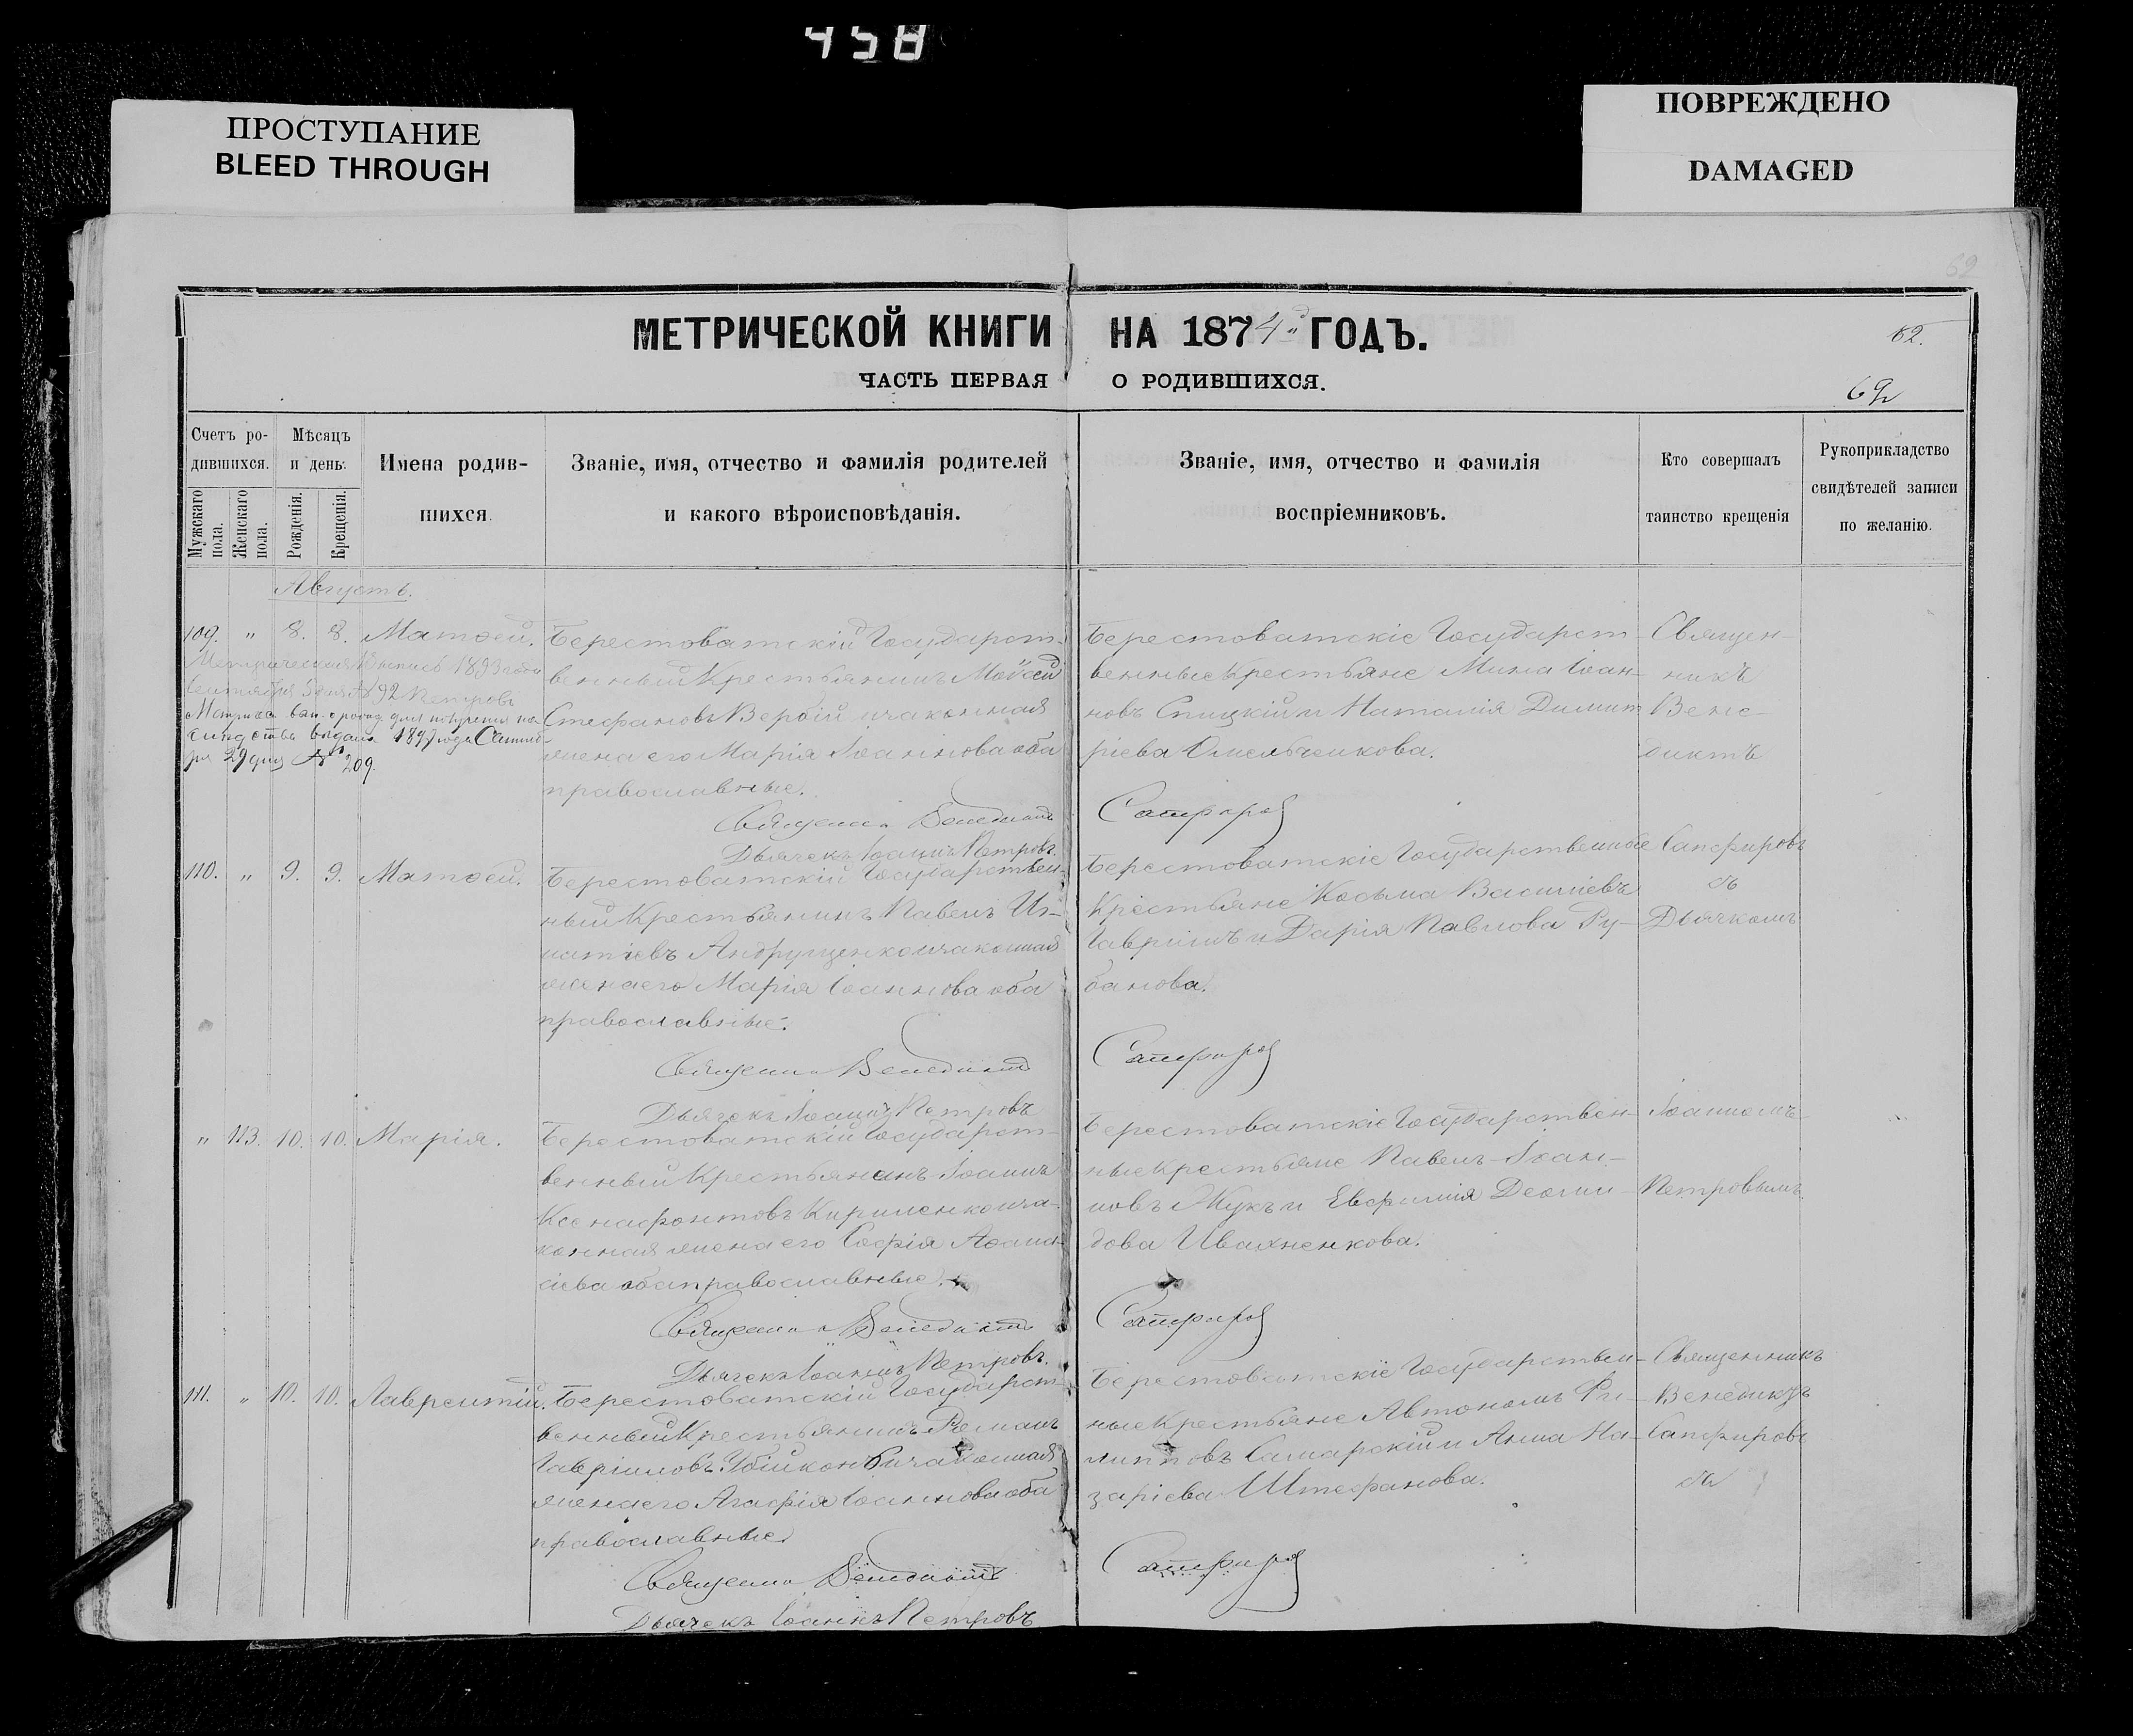 458
ПРОСТУПАНИЕ
BLEED THROUGH
ПОВРЕЖДЕНО
DAMAGED
62
МЕТРИЧЕСКОЙ КНИГИ НА 1874й ГОДЪ.
62.
ЧАСТЬ ПЕРВАЯ О РОДИВШИХСЯ.
Счетъ ро-
дившихся.
Мужскаго пола.
Женскаго пола.
Мѣсяцъ
и день.
Рожденія.
Крещенія.
Имена родив-
шихся.
Званіе, имя, отчество и фамилія родителей
и какого вѣроисповѣданія.
Званіе, имя, отчество и фамилія
воспріемниковъ.
Кто совершалъ
таинство крещенія
Рукоприкладство
свидѣтелей записи
по желанію.
Августъ.
109. " 8. 8. Матѳей.
Метрическая Выпись 1893 года
Сентября 5 дня № 92 Петровъ
выдана 1897 года Сентяб-
ря 29 дня № 209.
Берестоватскій Государст-
венный Крестьянинъ Моѵсей
Стефановъ Вербій и законная
жена его Марія Іоаннова оба
православные.
Священникъ Венедиктъ
Дьячекъ Іоаннъ Петровъ.
Берестоватскіе Государст-
венные Крестьяне Мина Іоан-
новъ Спицкій и Наталія Димит
ріева Омельченкова.
Сапфировъ
Священ-
никъ
Вене-
диктъ
110. " 9. 9. Матѳей.
Берестоватскій Государствен-
ный Крестьянинъ Павелъ Иг-
натіевъ Андрущенко и законная
жена его Марія Іоаннова оба
православные.
Священникъ Венедиктъ
Дьячекъ Іоаннъ Петровъ
Берестоватскіе Государственные
Крестьяне Косьма Василіевъ
Гаврішъ и Дарія Павлова Ру-
банова.
Сапфировъ
Сапфировъ
съ
Дьячкомъ
" 113. 10. 10. Марія.
Берестоватскій Государст-
венный Крестьянинъ Іоаннъ
Ксенофонтовъ Кириленко и за-
конная жена его Софія Аѳана-
сіева оба православные.
Священникъ Венедиктъ
Дьячекъ Іоаннъ Петровъ.
Берестоватскіе Государствен-
ные Крестьяне Павелъ Іоан-
новъ Жукъ и Евфимія Деоми-
дова Ивахненкова.
Сапфировъ
Іоанномъ
Петровымъ.
111. " 10. 10. Лаврентій.
Берестоватскій Государст-
венный Крестьянинъ Романъ
Гавріиловъ и законная
жена его Агафія Іоаннова оба
православные.
Священникъ Венедиктъ
Дьячекъ Іоаннъ Петровъ
Берестоватскіе Государствен-
ные Крестьяне Автономъ Фи-
липповъ Самарскій и Анна На-
заріева Штефанова.
Сапфировъ
Священникъ
Венедиктъ
Сапфировъ
съ